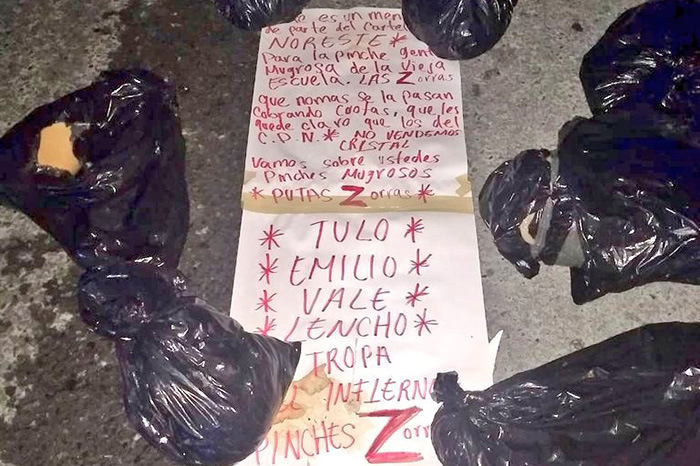 es es un men
de parte del Cartel
NORESTE *
Para la pinche gent
Mugrosa de la Vieja
Escuela. LAS Zorras
que nomas se la pasan
Cobrando Cootas, que les
quede claro que los del
C.D.N.* NO VENDEMOS
CRISTAL
Vamos sobre ustedes
Pinches Mugrosos
* PUTAS Zorras *
* TULO *
* EMILIO *
* VALE *
* LENCHO *
TROPA
INFIERNO
PINCHES Zorr